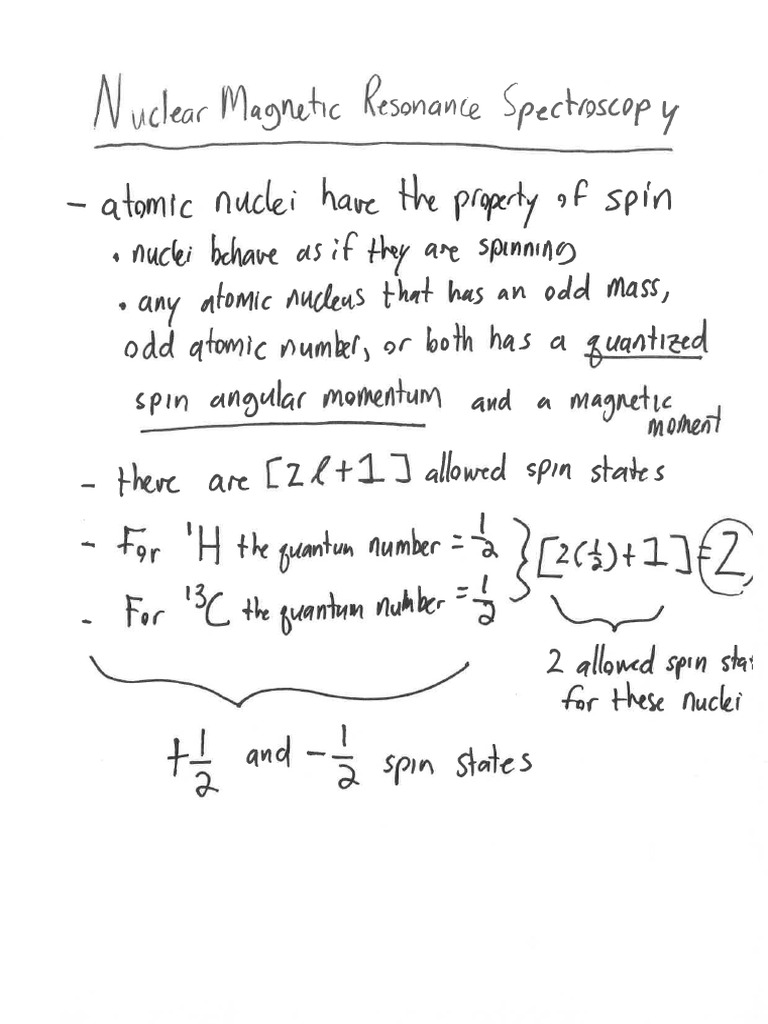 Nuclear Magnetic Resonance Spectroscopy
- atomic nuclei have the property of spin
• nuclei behave as if they are spinning
• any atomic nucleus that has an odd mass,
odd atomic number, or both has a quantized
spin angular momentum and a magnetic
moment
- there are [2l+1] allowed spin states
- For ¹H the quantum number = 1/2 } [2(1/2)+1]=2
- For ¹³C the quantum number = 1/2
2 allowed spin
for these nuclei
+1/2 and -1/2 spin states